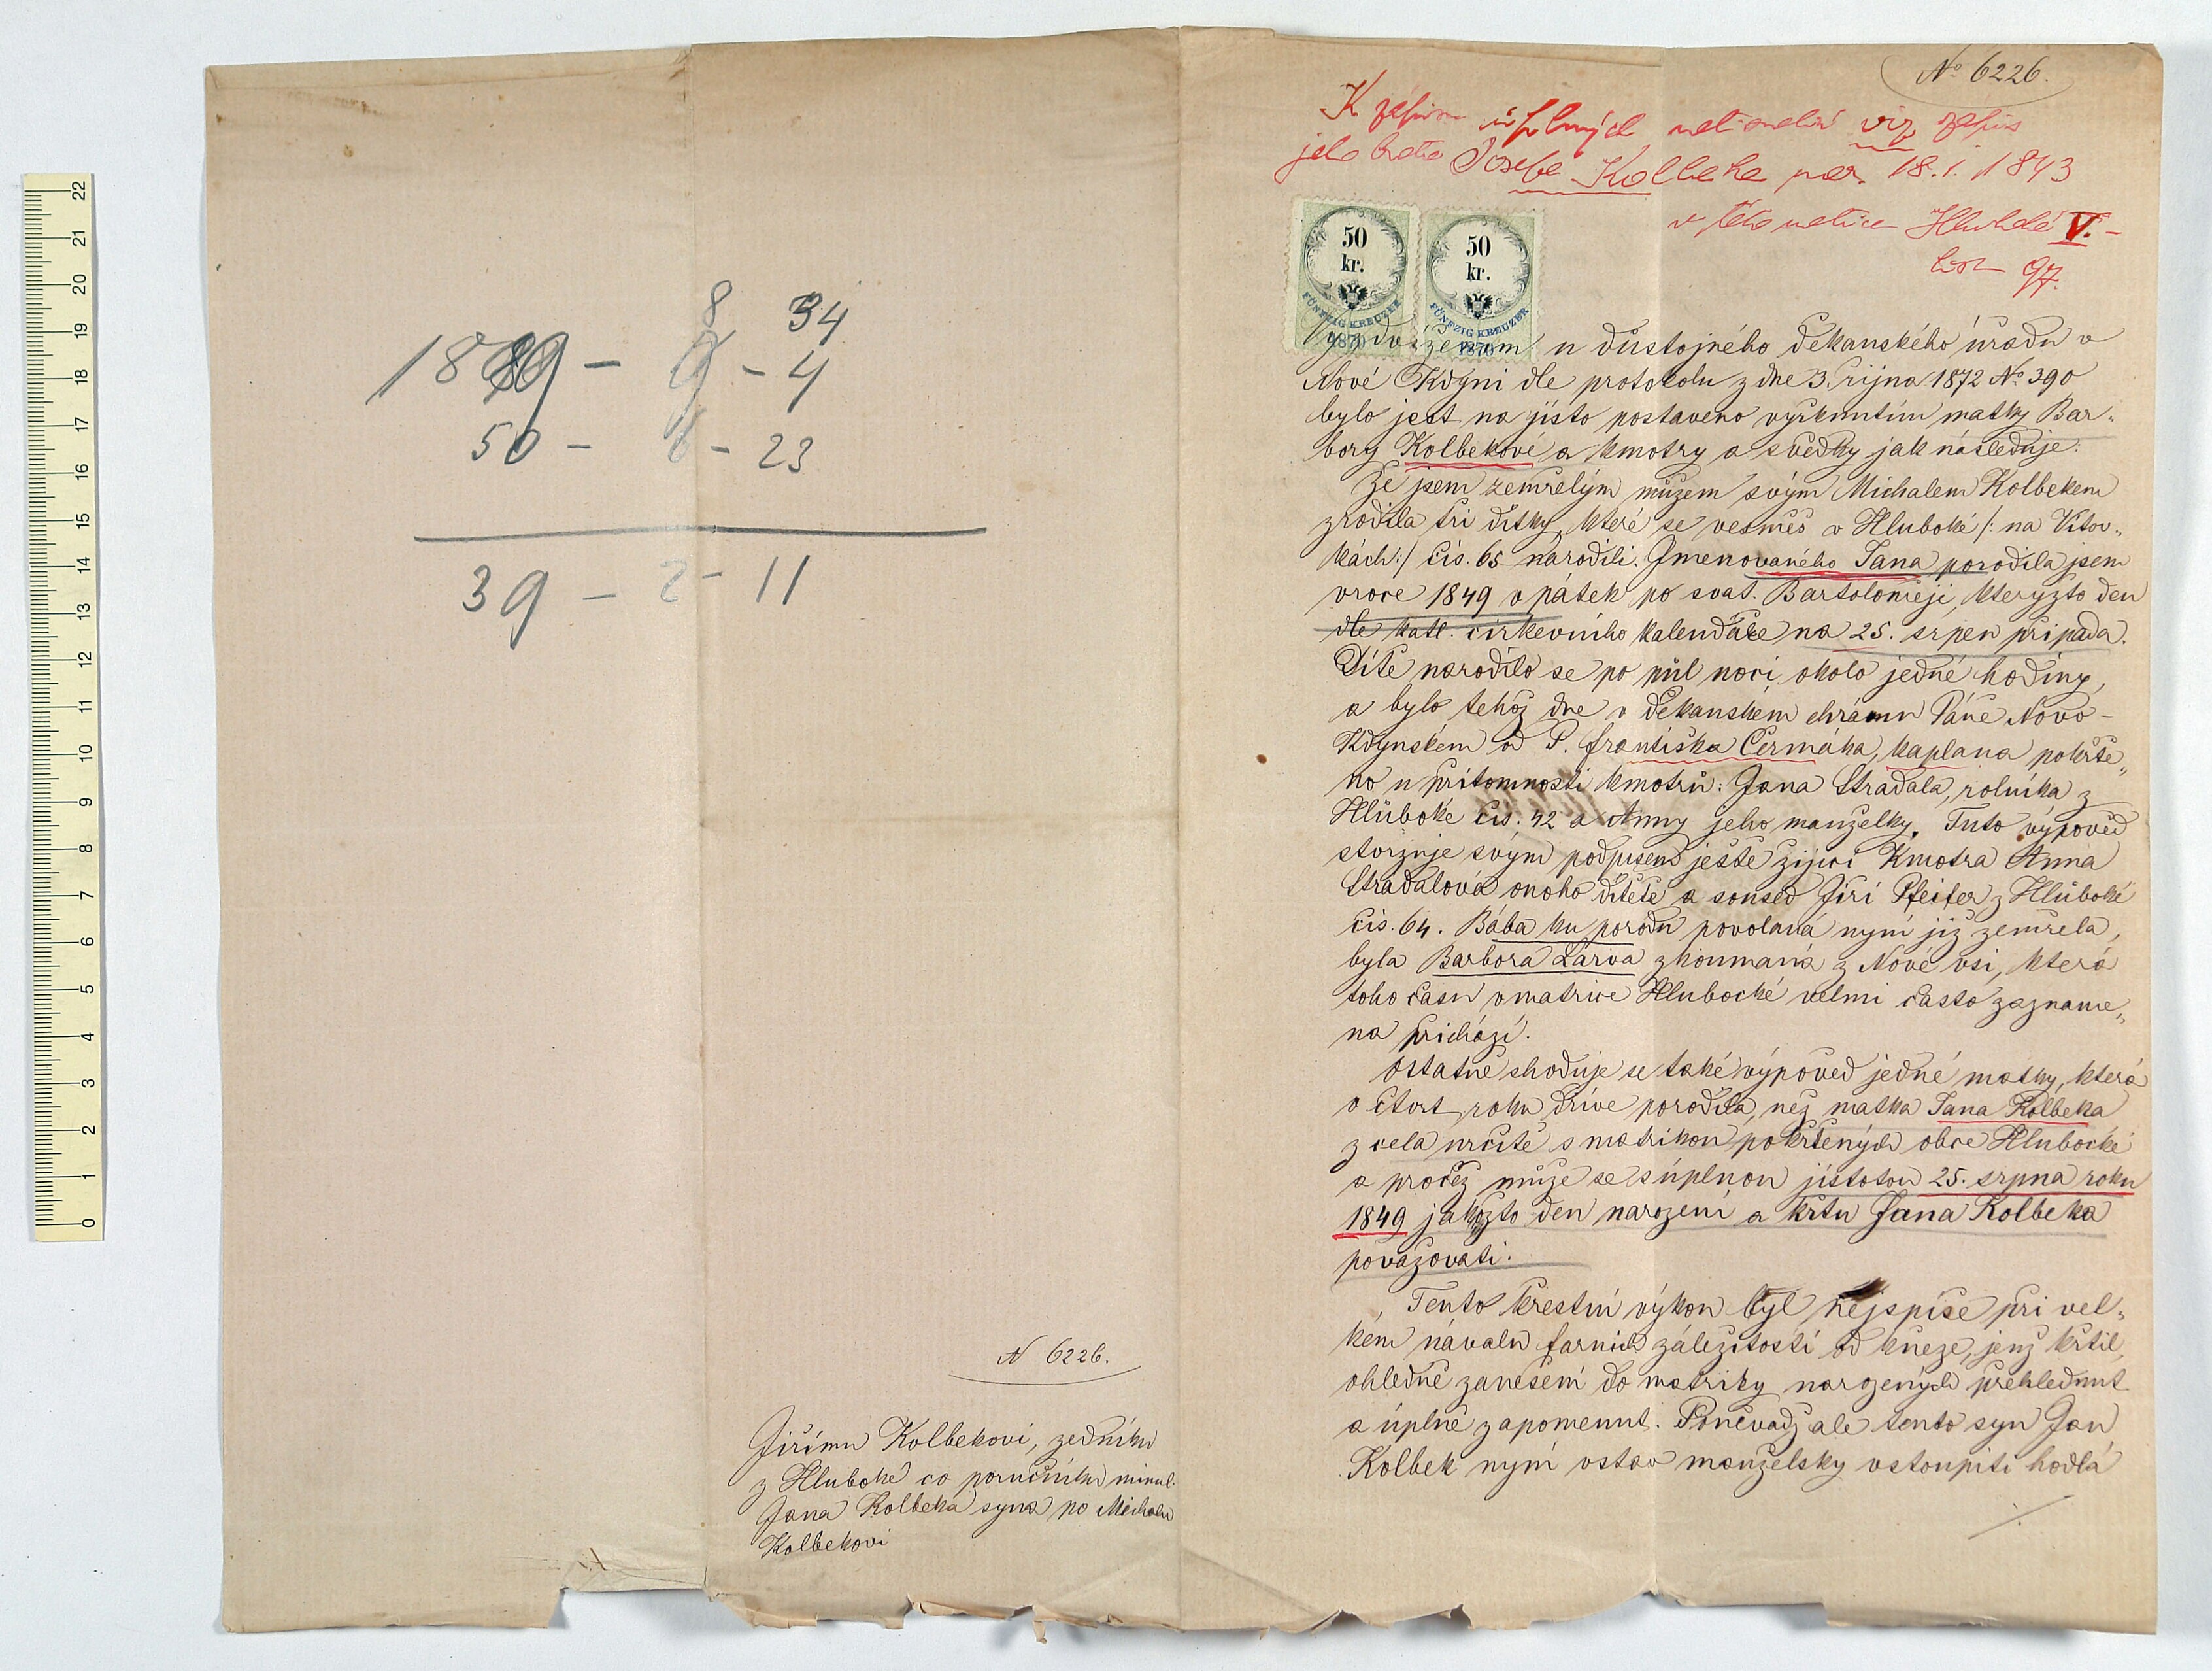 8 34
18 9 - 9 - 4
50 - 6 - 23
39 - 2 - 11
N 6226.
Jiřímu Kolbekovi, zedníku
z Hluboké co poručníku minul.
Jana Kolbeka syna po Michalu
Kolbekovi
No 6226.
K zápisu úplných viz zápis
jeho bratra Josefa Kolbeka nar. 18.1.1843
v této matrice Hluboká V. -
list 97.
50 kr. FÜNFZIG KREUZER 1870
50 kr. FÜNFZIG KREUZER 1870
u důstojného děkanského úřadu v
Nové Kdyni dle protokolu z dne 3. října 1872 No 390
bylo jest na jisto postaveno vyřknutím matky Bar-
bory Kolbekové a kmotry a svědky jak následuje:
Že jsem zemřelým mužem svým Michalem Kolbekem
zrodila tři dítky, které se vesměs v Hluboké /: na Vítov-
kách:/ čís. 65 narodili. Jmenovaného Jana porodila jsem
v roce 1849 v pátek po svat. Bartoloměji, kterýžto den
dle katl. církevního kalendáře na 25. srpen připadá.
Dítě narodilo se po půl noci okolo jedné hodiny,
a bylo tehož dne v děkanském chrámu Páně Novo-
Kdynském od P. Františka Čermáka, kaplana pokřtě„
no u přítomnosti kmotrů: Jana Stradala, rolníka z
Hluboké čís. 42 a Anny jeho manželky. Tuto výpověď
stvrzuje svým podpisem ještě žijící Kmotra Anna
Stradalová onoho dítěte a soused Jiří Pfeifer z Hluboké
čís. 64. Bába ku porodu povolaná nyní již zemřela,
byla Barbora Lárva zkoumaná z Nové vsi, která
toho času v matrice Hlubocké velmi často zazname„
na přichází.
Ostatně shoduje se také výpověď jedné matky, která
o čtvrt roku dříve porodila, než matka Jana Kolbeka
z cela určitě s matrikou pokřtěných obce Hlubocké
a pročež může se s úplnou jistotou 25. srpna roku
1849 jakožto den narození a křtu Jana Kolbeka
považovati.
Tento křestní výkon byl nejspíše při vel-
kém návalu farních záležitostí od kněze, jenž křtil,
ohledně zanešení do matriky narozených přehlednut
a úplně zapomenut. Poněvadž ale tento syn Jan
Kolbek nyní v stav manželský vstoupiti hodlá
./.